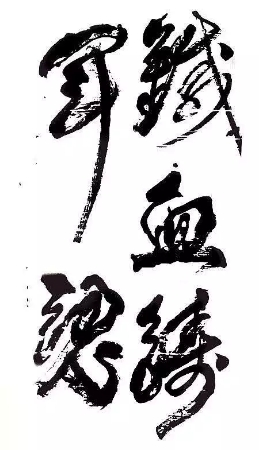 鐵血鑄
軍魂